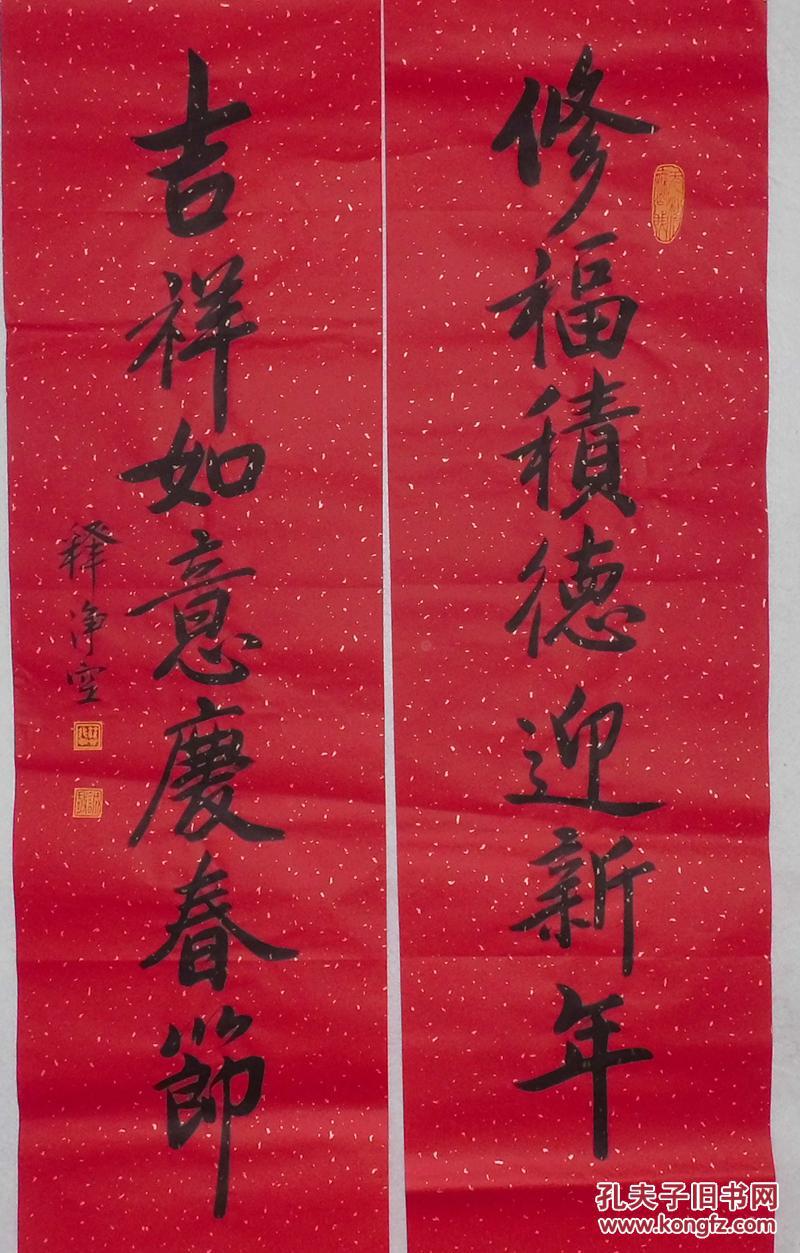 修福積德迎新年
吉祥如意慶春節
釋淨空
孔夫子旧书网
www.kongfz.com